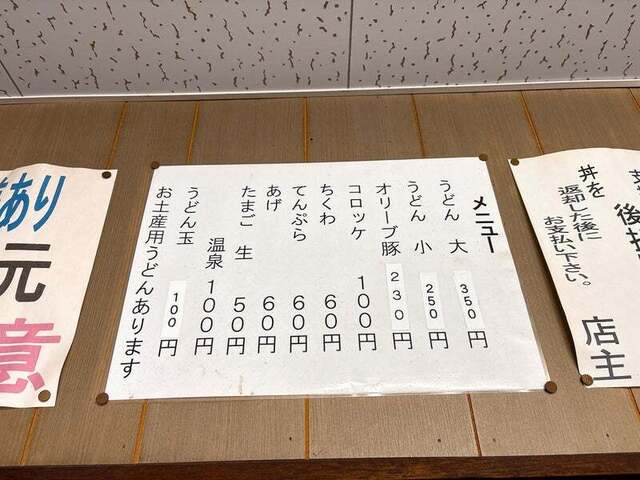 丼を
返却した後に
お支払い下さい。
店主
メニュー
うどん 大 350円
うどん 小 250円
オリーブ豚 230円
コロッケ 100円
ちくわ 60円
てんぷら 60円
あげ 60円
たまご 生 50円
温泉 100円
うどん玉 100円
お土産用うどんあります
あり
元
意